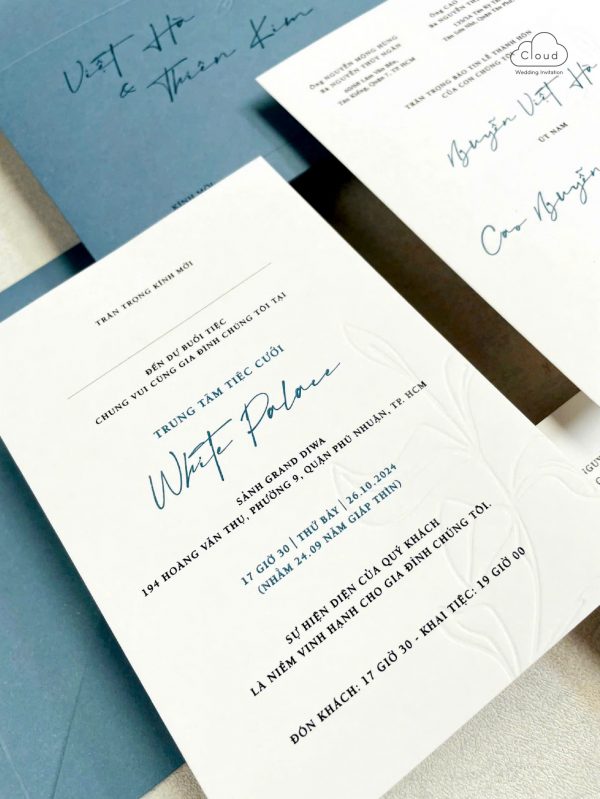 Việt Hà
& Thiên Kim
KÍNH MỜI
Cloud
Wedding Invitation
Ông NGUYỄN MỘNG HÙNG
Bà NGUYỄN THỦY NGÂN
Tân Kiểng, Quận 7, TP. HCM
Ông CAO
Bà NGUYỄN
TRÂN TRỌNG BÁO TIN LỄ THÀNH HÔN
CỦA CON CHÚNG TÔI
Nguyễn Việt Hà
ÚT NAM
Cao Nguyễn
TRÂN TRỌNG KÍNH MỜI
ĐẾN DỰ BUỔI TIỆC
CHUNG VUI CÙNG GIA ĐÌNH CHÚNG TÔI TẠI
TRUNG TÂM TIỆC CƯỚI
White Palace
SẢNH GRAND DIWA
194 HOÀNG VĂN THỤ, PHƯỜNG 9, QUẬN PHÚ NHUẬN, TP. HCM
17 GIỜ 30 | THỨ BẢY | 26.10.2024
(NHẰM 24.09 NĂM GIÁP THÌN)
SỰ HIỆN DIỆN CỦA QUÝ KHÁCH
LÀ NIỀM VINH HẠNH CHO GIA ĐÌNH CHÚNG TÔI.
ĐÓN KHÁCH: 17 GIỜ 30 - KHAI TIỆC: 19 GIỜ 00